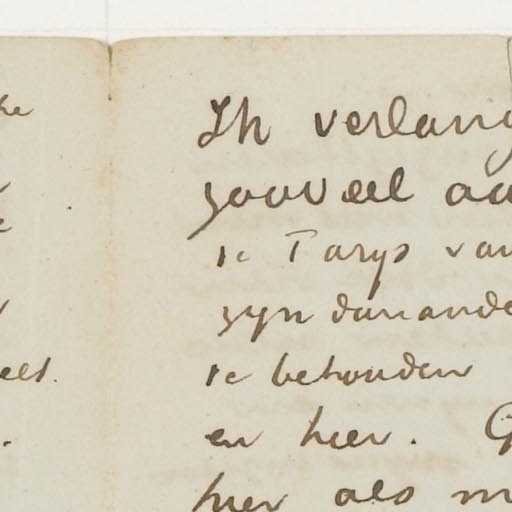 Ik verlang
zooveel aa
te Parys van
zyn dan ande
te behouden
en hier. G
hier als m